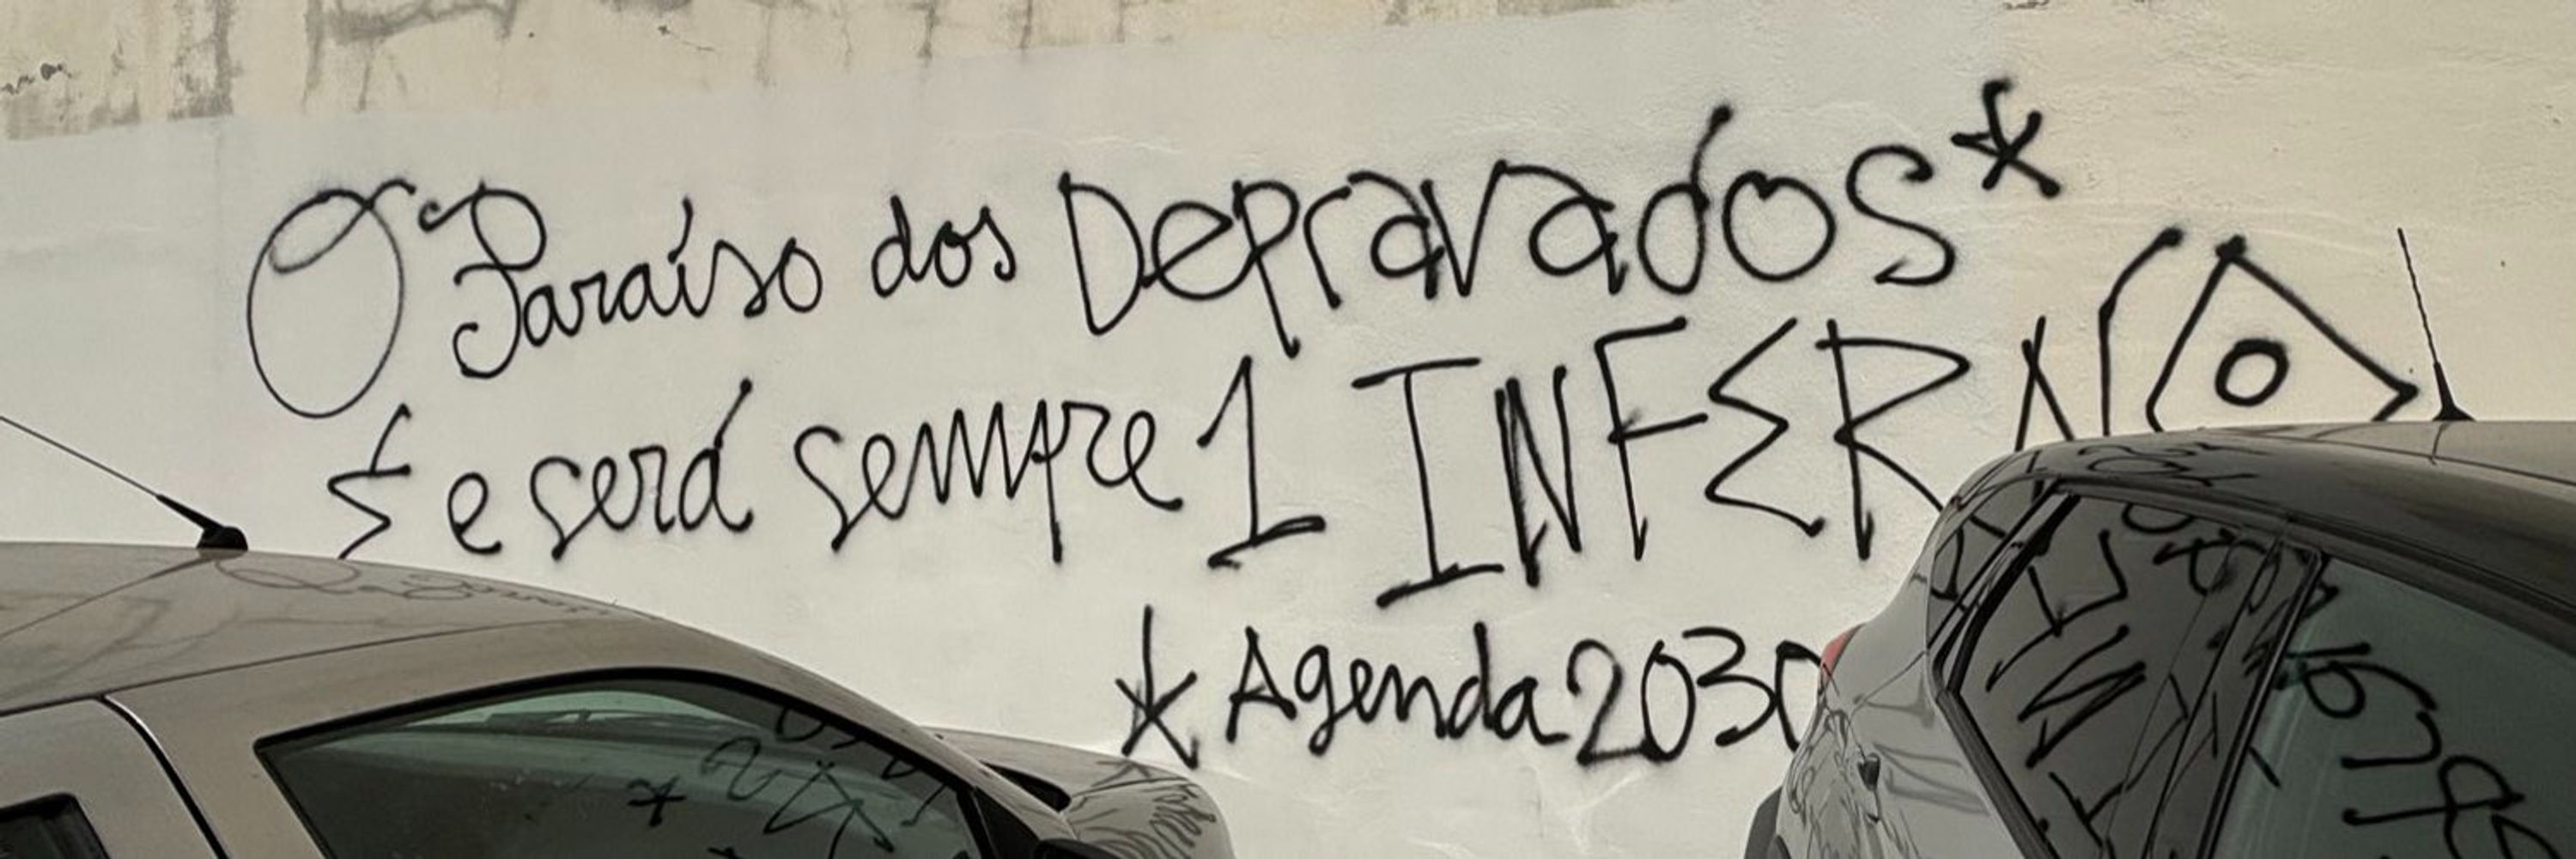 O Paraíso dos Depravados*
É e será sempre 1 INFERNO
* Agenda 2030